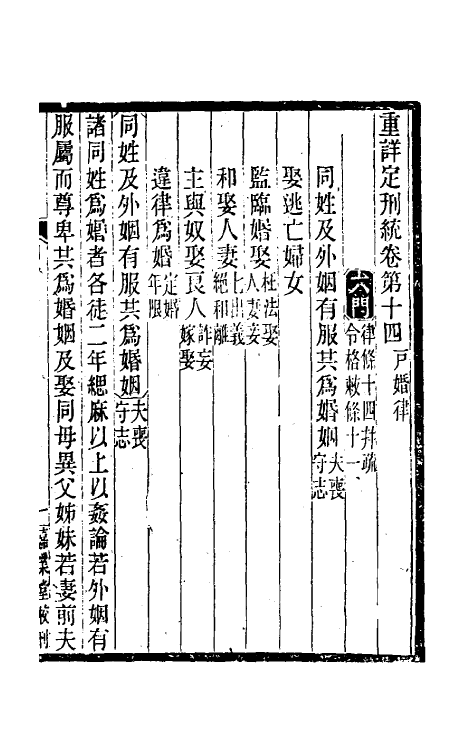 重詳定刑統卷第十四 戸婚律
六門 律條十四并疏 令格敕條十一
同姓及外姻有服共爲婚姻 夫喪守志
娶逃亡婦女
監臨婚娶 枉法娶人妻妾
和娶人妻 七出義絕和離
主與奴娶良人 詐妄嫁娶
違律爲婚 定婚年限
同姓及外姻有服共爲婚姻 夫喪守志
諸同姓爲婚者各徒二年緦麻以上以姦論若外姻有
服屬而尊卑共爲婚姻及娶同母異父姊妹若妻前夫
一 嘉業堂校刊